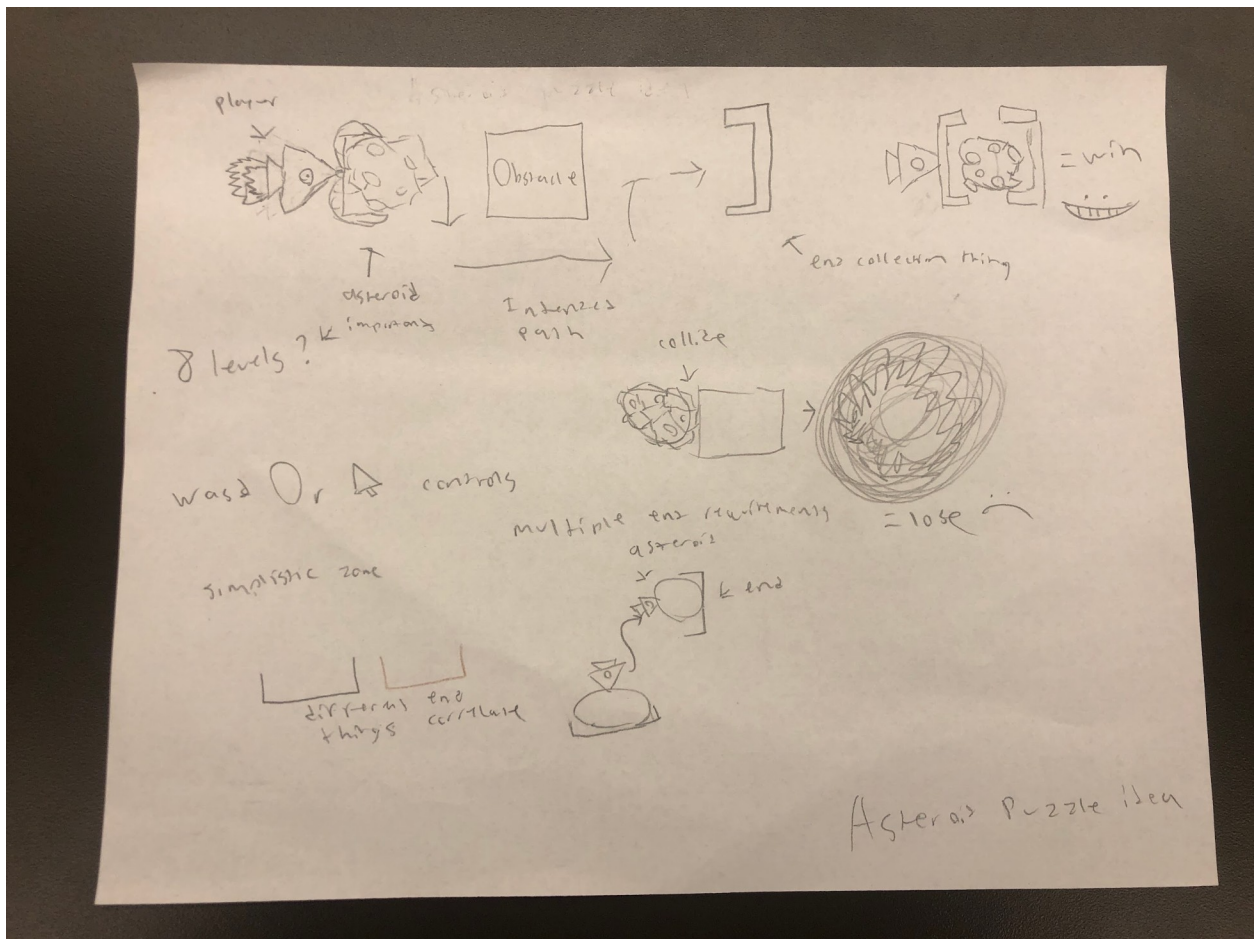 Asteroid puzzle idea
player
Obstacle
= win
end collection thing
asteroid
important
Intended
path
8 levels?
collide
wasd Or controls
= lose
multiple end requirements
asteroid
simplistic zone
end
different end
things correlate
Asteroid Puzzle idea